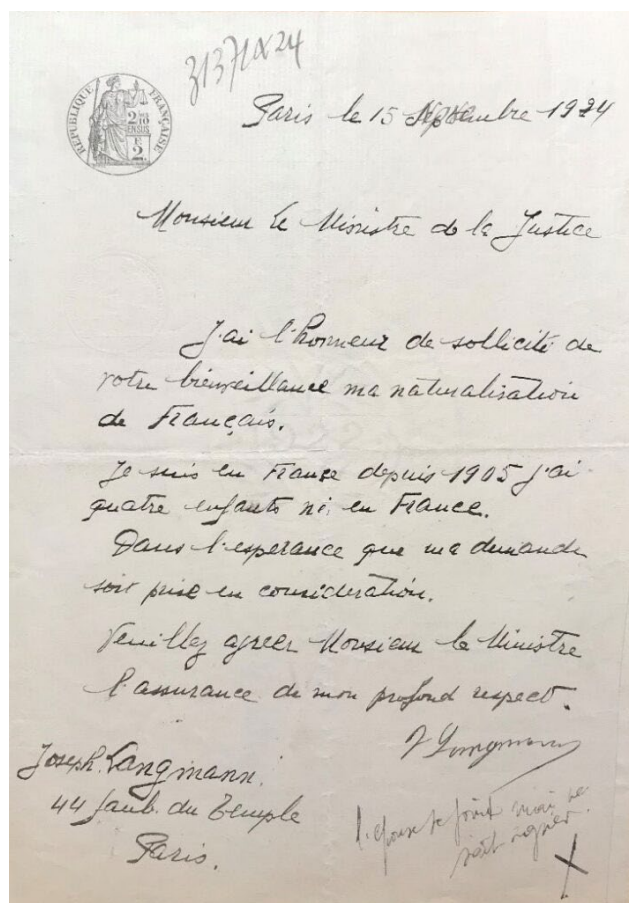 31371 X 24
RÉPUBLIQUE FRANÇAISE
2/10
EN SUS
Paris le 15 Septembre 1924
Monsieur le Ministre de la Justice
J'ai l'honneur de sollicité de
votre bienveillance ma naturalisation
de Français.
Je suis en France depuis 1905 j'ai
quatre enfants né, en France.
Dans l'esperance que ma demande
soit prise en consideration.
Veuillez agreer Monsieur le Ministre
l'assurance de mon profond respect.
J Langmann
Joseph. Langmann.
44 faub. du Temple
Paris.
l'épouse se joint mais ne
sait signer.
X